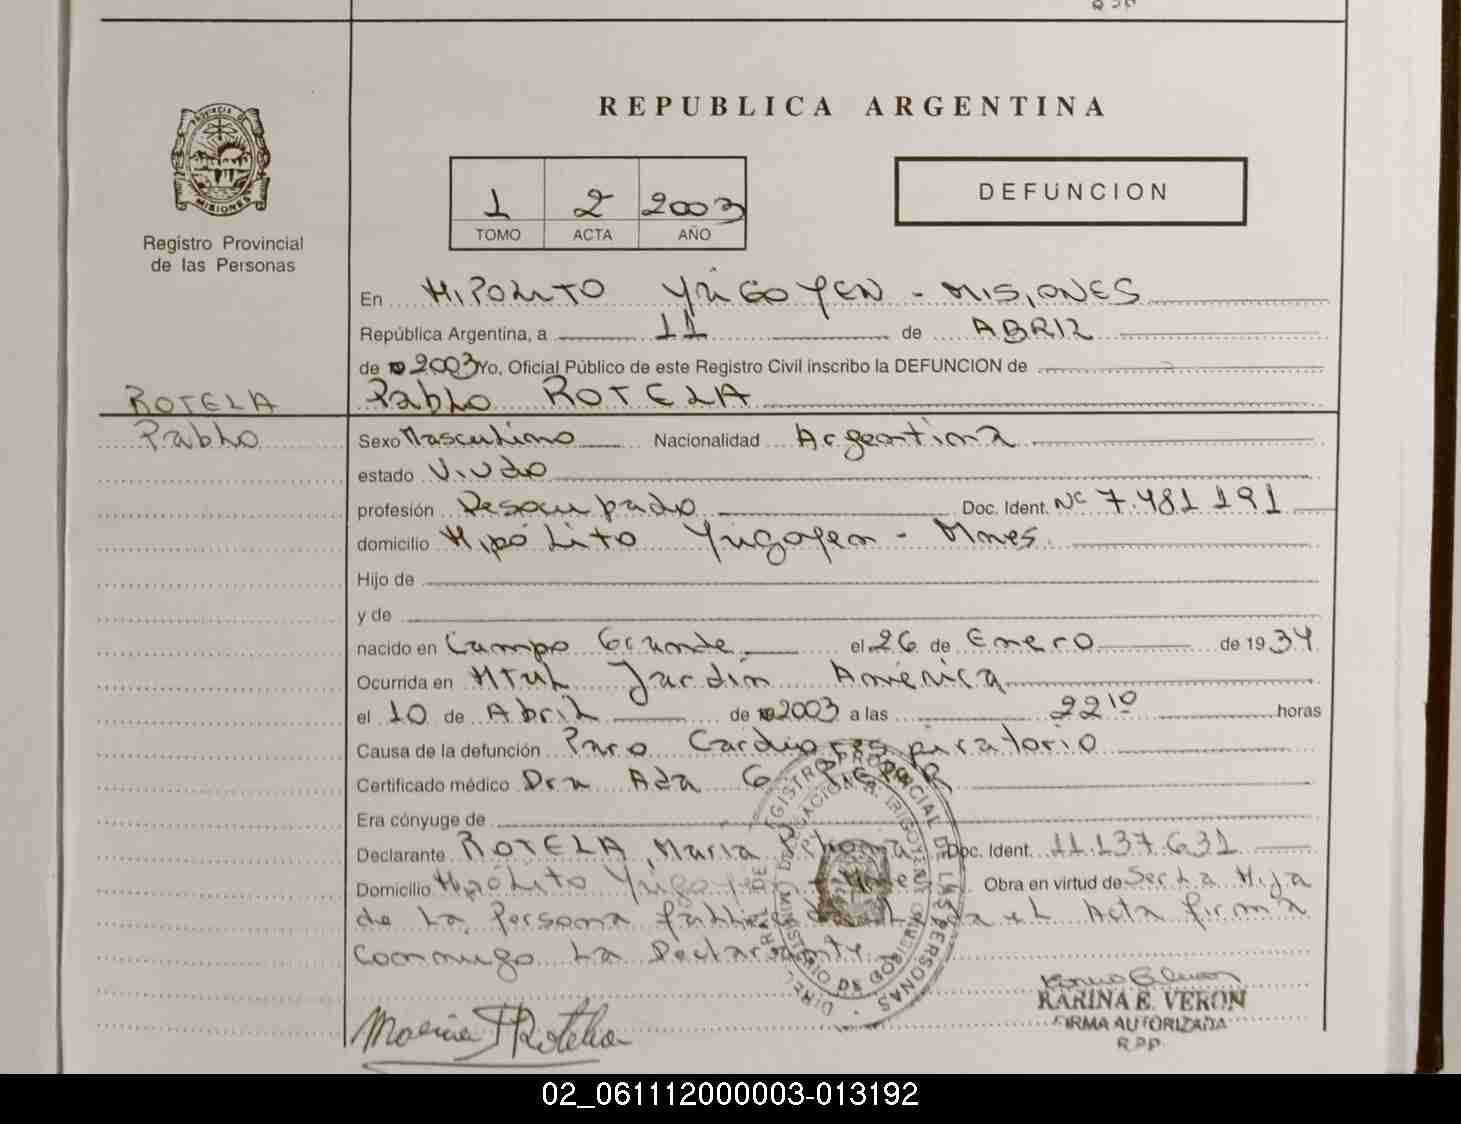 REPUBLICA ARGENTINA
PROVINCIA DE
MISIONES
Registro Provincial
de las Personas
1 2 2003
TOMO ACTA AÑO
DEFUNCION
En HIPOLITO YRIGOYEN - MISIONES
República Argentina, a 11 de ABRIL
de 2003 Yo, Oficial Público de este Registro Civil inscribo la DEFUNCION de
ROTELA Pablo ROTELA
Pablo Sexo Masculino Nacionalidad Argentina
estado Viudo
profesión Desocupado Doc. Ident. Nº 7.481.191
domicilio Hipólito Yrigoyen - Mnes.
Hijo de
y de
nacido en Campo Grande el 26 de Enero de 1934
Ocurrida en Htal Jardin América
el 10 de Abril de 2003 a las 22 10 horas
Causa de la defunción Paro Cardiorespiratorio
Certificado médico Dra Ada G
Era cónyuge de
Declarante ROTELA, Maria Doc. Ident. 11.137.631
Domicilio Hipólito Yrigoyen Obra en virtud de Ser La Hija
de La Persona Acta firma
conmigo La Declarante
Maria Rotela
KARINA E. VERON
FIRMA AUTORIZADA
R.P.P.
02_061112000003-013192